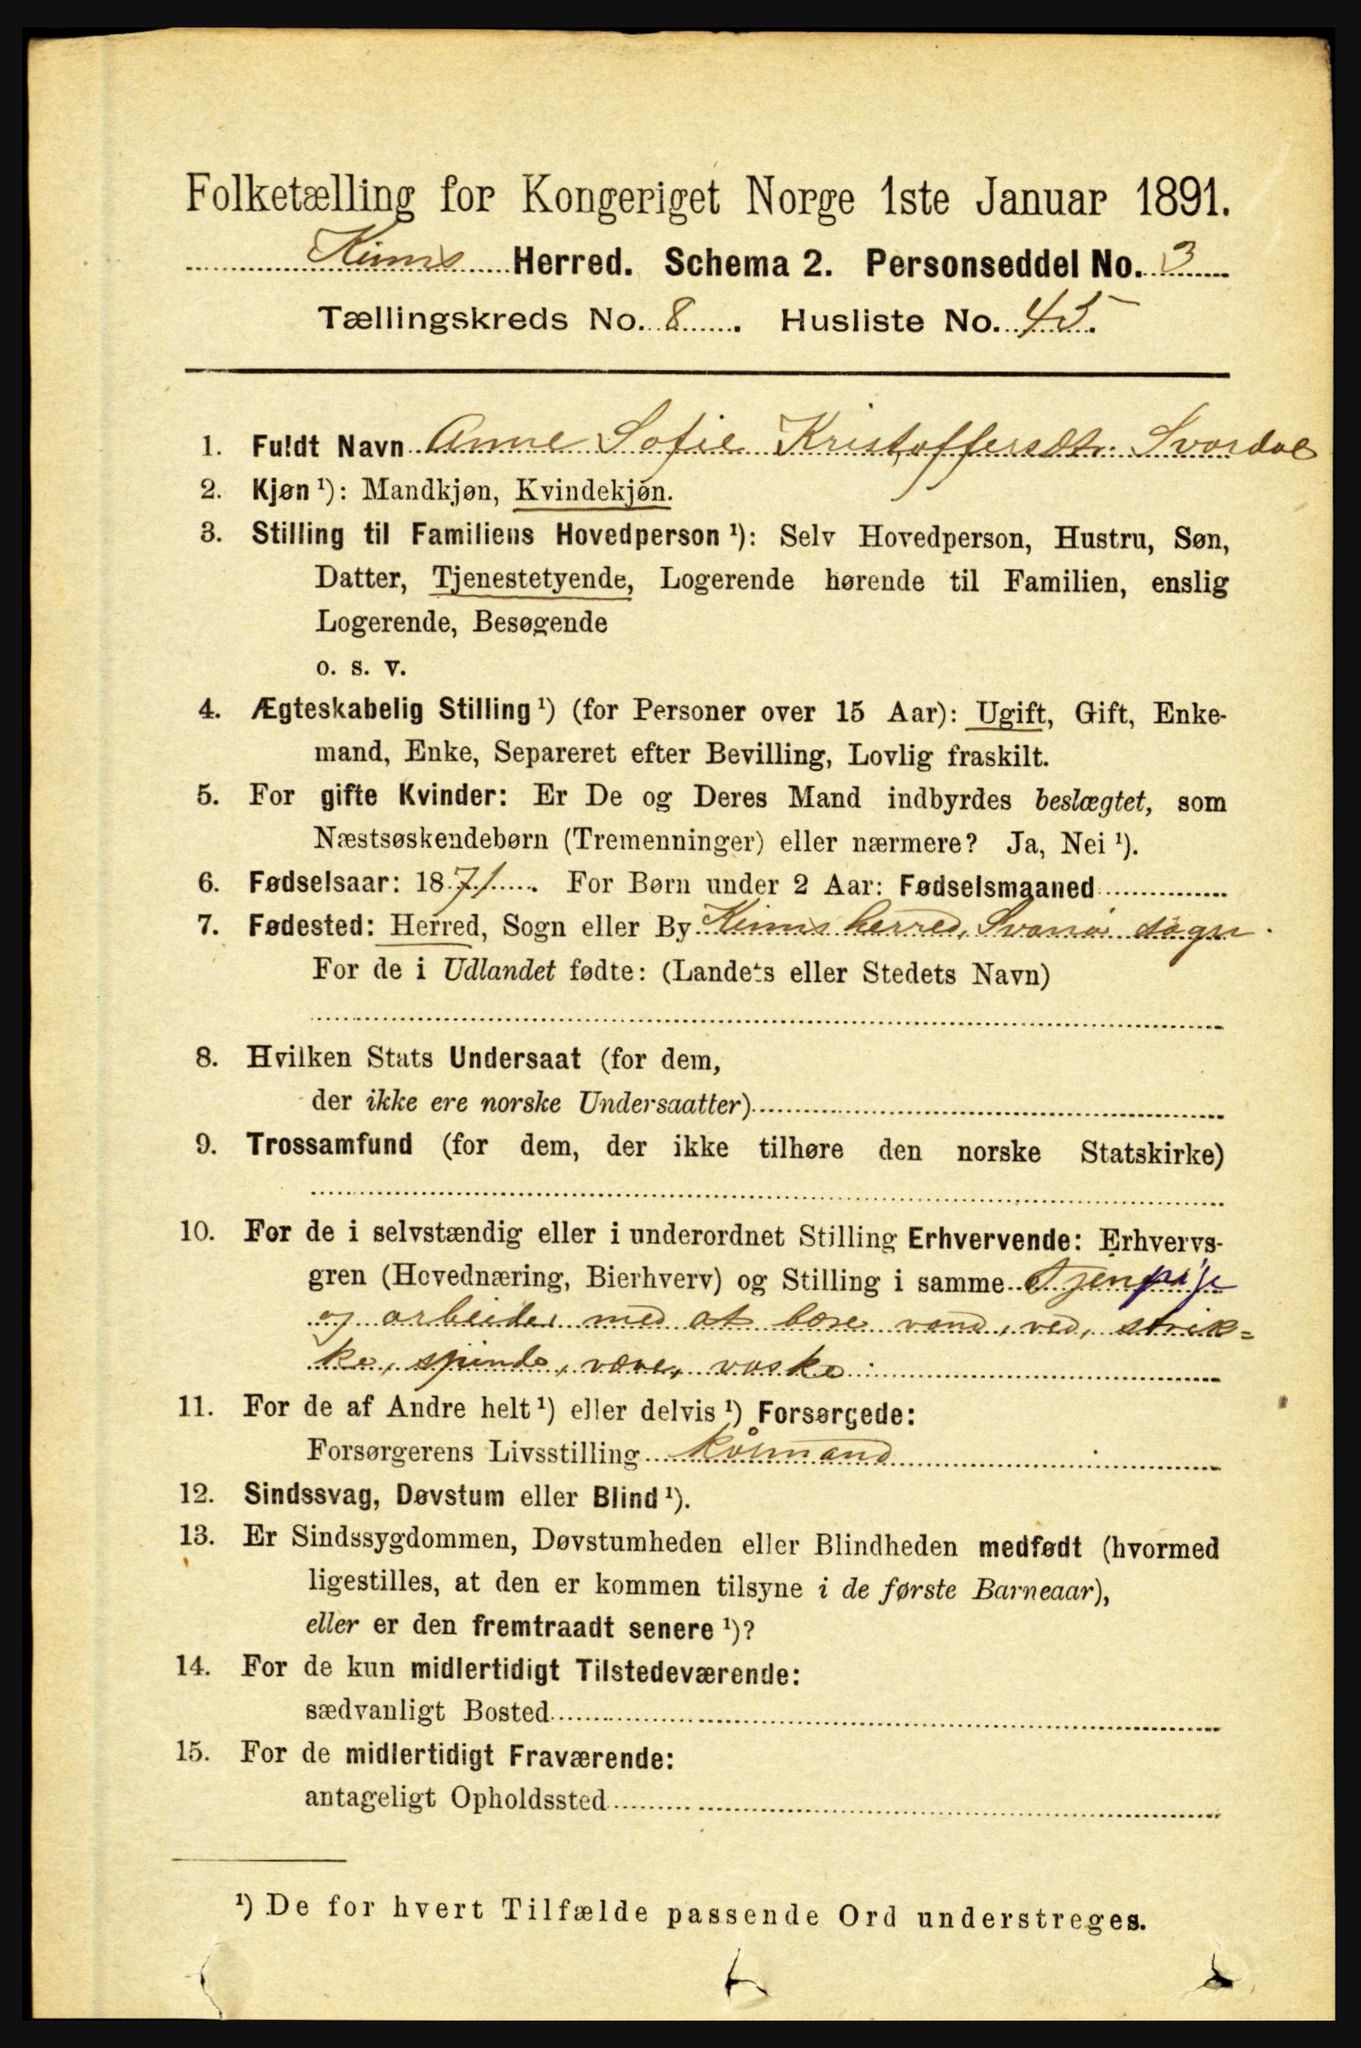 Folketælling for Kongeriget Norge 1ste Januar 1891.
Kinns Herred. Schema 2. Personseddel No. 3
Tællingskreds No. 8. Husliste No. 45.
1. Fuldt Navn Anne Sofie Kristoffersdtr. Svardal
2. Kjøn ¹): Mandkjøn, Kvindekjøn.
3. Stilling til Familiens Hovedperson ¹): Selv Hovedperson, Hustru, Søn,
Datter, Tjenestetyende, Logerende hørende til Familien, enslig
Logerende, Besøgende
o. s. v.
4. Ægteskabelig Stilling ¹) (for Personer over 15 Aar): Ugift, Gift, Enke-
mand, Enke, Separeret efter Bevilling, Lovlig fraskilt.
5. For gifte Kvinder: Er De og Deres Mand indbyrdes beslægtet, som
Næstsøskendebørn (Tremenninger) eller nærmere? Ja, Nei ¹).
6. Fødselsaar: 1871. For Børn under 2 Aar: Fødselsmaaned
7. Fødested: Herred, Sogn eller By Kinns herred, Svanø sogn.
For de i Udlandet fødte: (Landets eller Stedets Navn)
8. Hvilken Stats Undersaat (for dem,
der ikke ere norske Undersaatter)
9. Trossamfund (for dem, der ikke tilhøre den norske Statskirke)
10. For de i selvstændig eller i underordnet Stilling Erhvervende: Erhvervs-
gren (Hovednæring, Bierhverv) og Stilling i samme Tjenpije
og arbeider med at bære vand, ved, strik-
ke, spinde, væve, vaske.
11. For de af Andre helt ¹) eller delvis ¹) Forsørgede:
Forsørgerens Livsstilling kårmand
12. Sindssvag, Døvstum eller Blind ¹).
13. Er Sindssygdommen, Døvstumheden eller Blindheden medfødt (hvormed
ligestilles, at den er kommen tilsyne i de første Barneaar),
eller er den fremtraadt senere ¹)?
14. For de kun midlertidigt Tilstedeværende:
sædvanligt Bosted
15. For de midlertidigt Fraværende:
antageligt Opholdssted
¹) De for hvert Tilfælde passende Ord understreges.